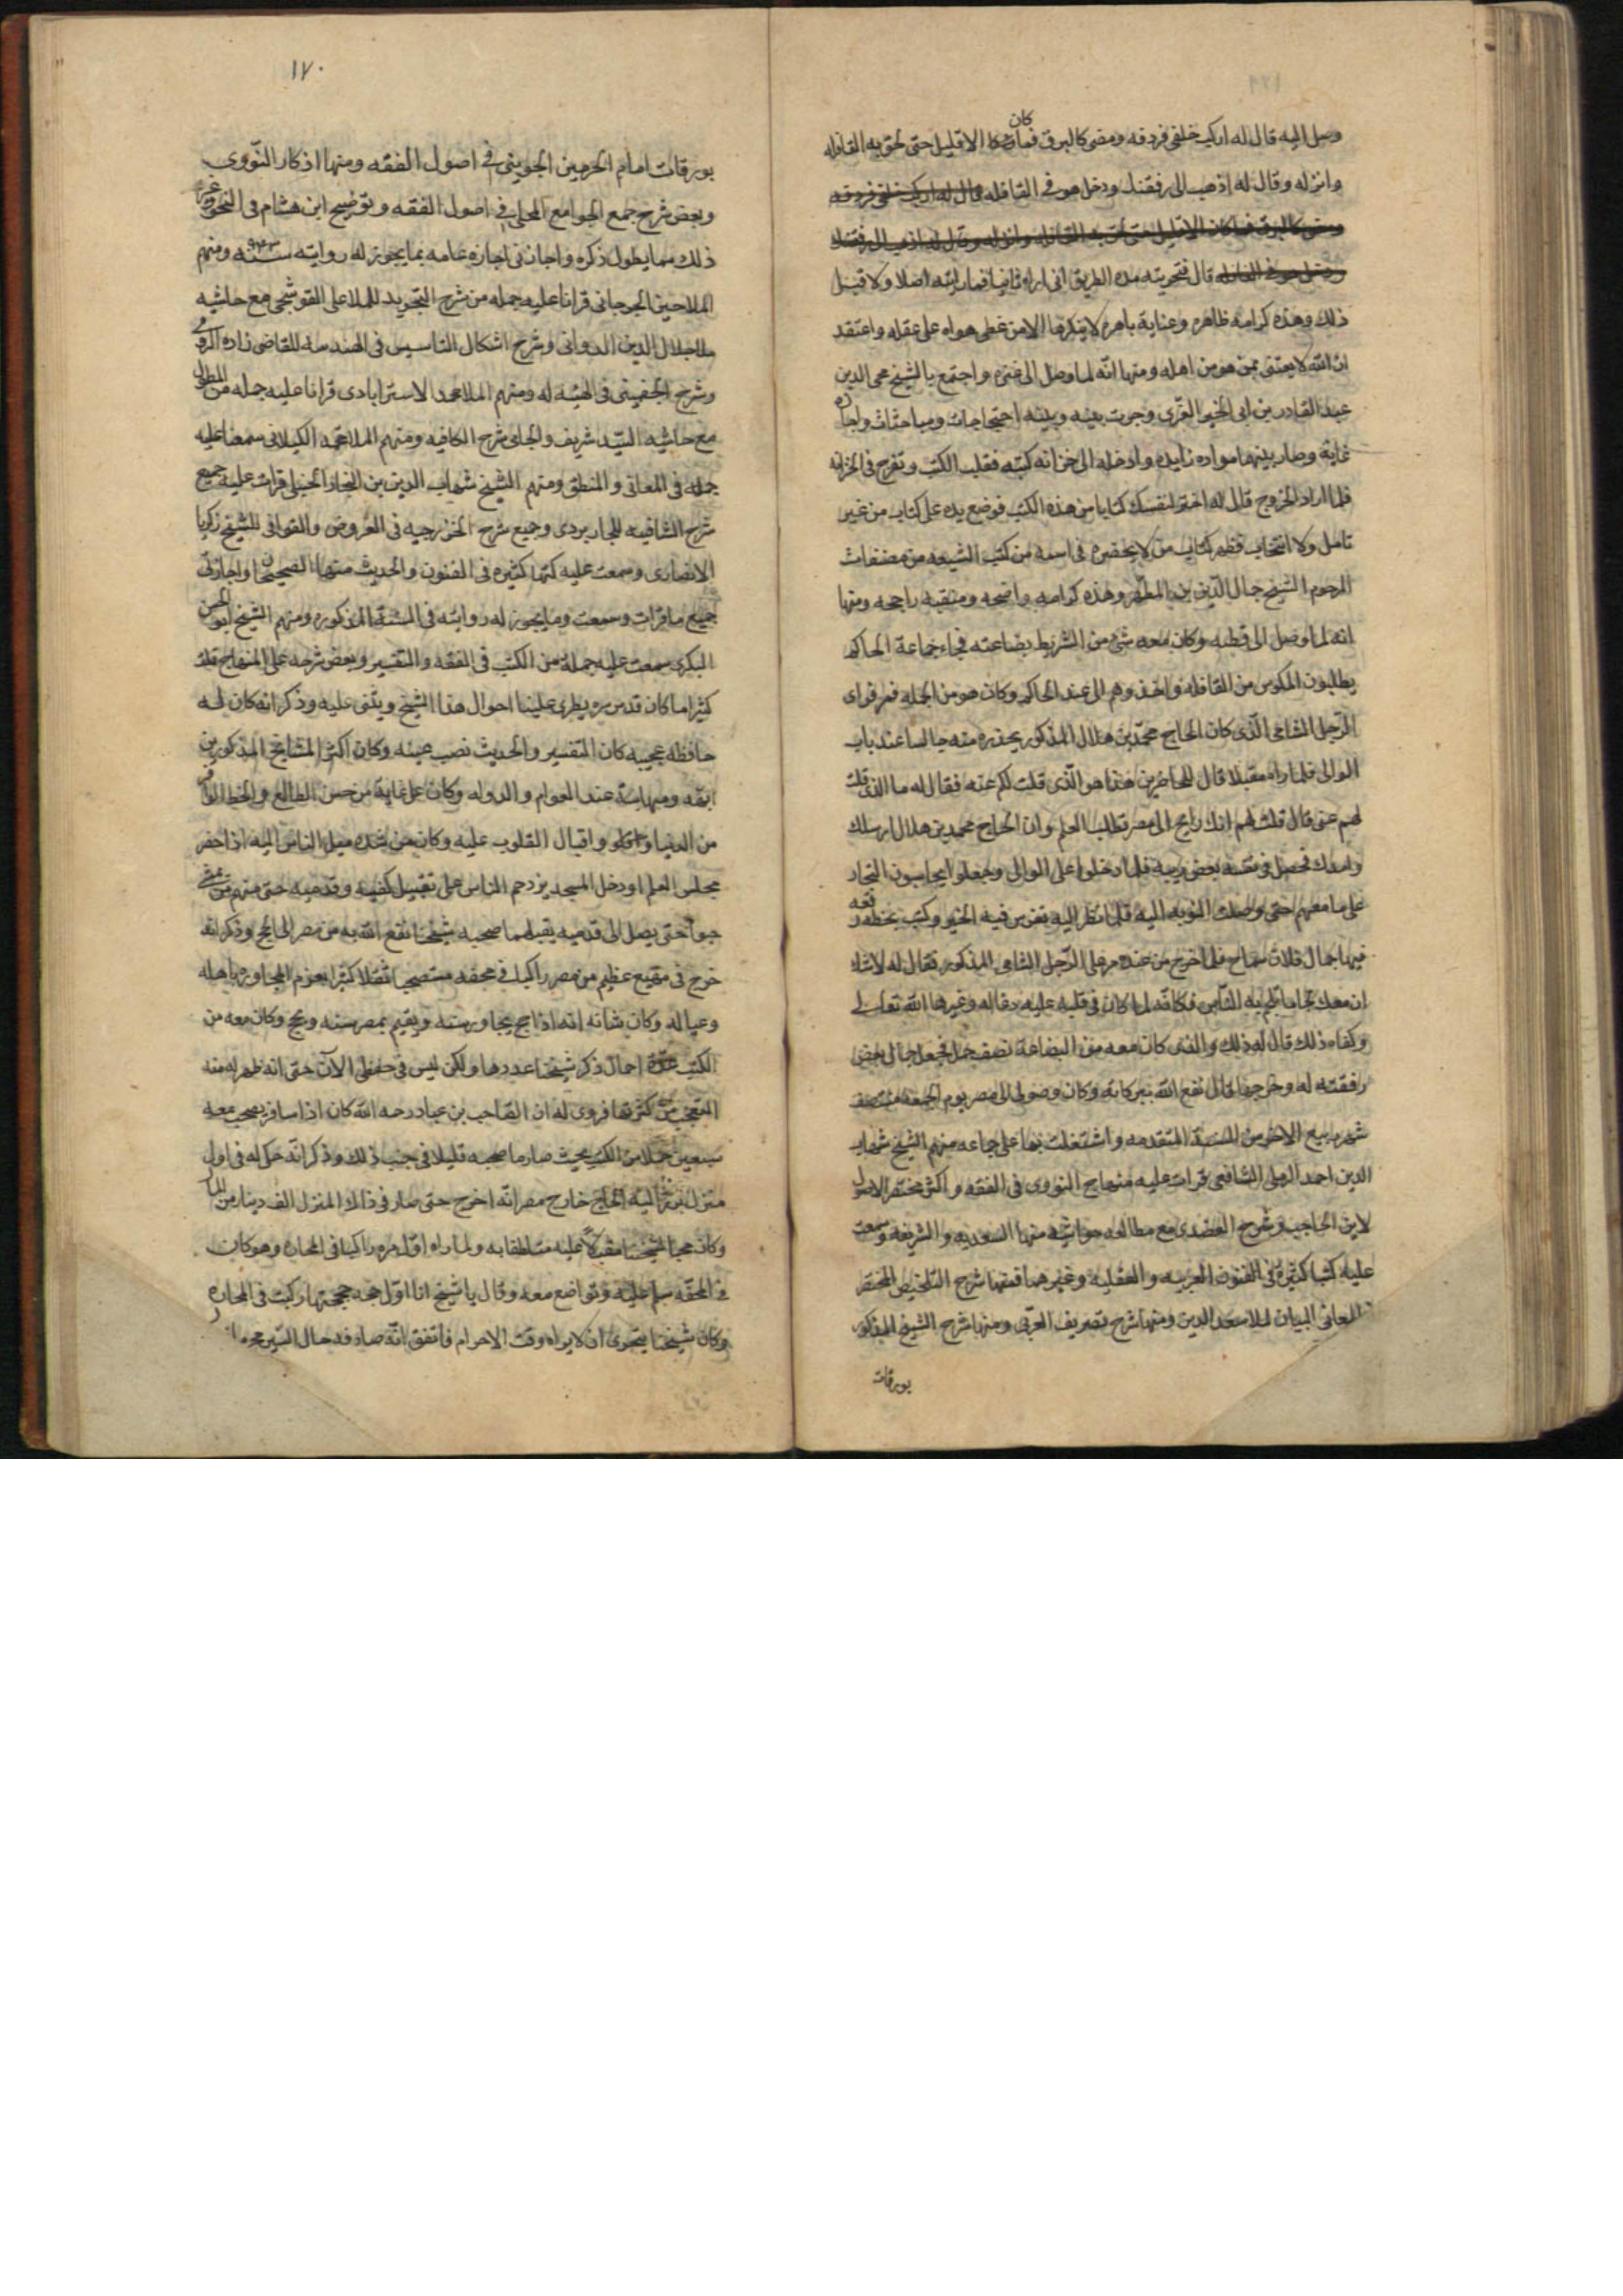 وصل اليه قال له اركب خلفى فردفه ومضى كالبرق فما كان الا قليل حتى لحق به القافله
وانزله وقال له اذهب الى رفقتك ودخل هو فى القافله قال له اركب خلفى فردفه
ومضى كالبرق فما كان الا قليل حتى لحق به القافله وانزله وقال له اذهب الى رفقتك
ودخل هو فى القافله قال فتحريته مده الطريق انى اراه ثانيا فما رايته اصلا ولا قبل
ذلك وهذه كرامه ظاهره وعناية باهره لا ينكرها الا من غطى هواه على عقله واعتقد
ان الله لا يعتنى بمن هو من اهله ومنها انّه لما وصل الى غزه واجتمع بالشيخ محى الدين
عبد القادر بن ابى الخير الغزّى وجرت بينه وبينه احتجاجات ومباحثات واجازه
عامة وصار بينهما مواده زايده وادخله الى خزانه كتبه فقلب الكتب وتفرج فى الخزانه
فلما اراد الخروج قال له اختر لنفسك كتابا من هذه الكتب فوضع يده على كتاب من غير
تامل ولا انتخاب فظهر كتاب من لا يحضره فى اسمه من كتب الشيعه من مصنفات
المرحوم الشيخ جمال الدّين بن المطهّر وهذه كرامه واضحه ومنقبه راجحه ومنها
انه لما وصل الى قطيه وكان معه شئ من الشريط بضاعته فجاء جماعة الحاكم
يطلبون المكوس من القافله واخذوهم الى عند الحاكم وكان هو من الجمله فمر فراى
الرّجل الشامى الّذى كان الحاج محمّد بن هلال المذكور يحذره منه جالسا عند باب
الوالى فلما راه مقبلا قال للحاضرين هذا هو الّذى قلت لكم عنه فقال له ما الذى قلت
لهم عنى قال قلت لهم انك رايح الى مصر تطلب العلم وان الحاج محمد بن هلال ارسلك
وامدك فحصل فى نفسه بعض ريبه فلما دخلوا على الوالى وجعلوا يحاسبون التجار
على ما معهم حتى وصلت النوبه اليه فلما نظر اليه تفرس فيه الخير وكتب بخطه رقعه
فيها جمال فلان سماح فلما خرج من عنده مر على الرّجل الشامى المذكور فقال له لا شك
ان معك
وكفاه ذلك قال له ذلك والذى كان معه من البضاعة نصف حمل فجعل اجمالى بعض
رفقته له وخرجها قال نفع الله ببركاته وكان وصولى الى مصر يوم الجمعه منتصف
شهر ربيع الاخر من السنة المتقدمه واشتغلت بها على جماعه منهم الشيخ شهاب
الدين احمد الرملى الشافعى قرات عليه منهاج النووى فى الفقه واكثر مختصر الاصول
لابن الحاجب وشرح العضدى مع مطالعه حواشيه منها السعديه والشريفه وسمعت
عليه كتبا كثيرة فى الفنون العربيه والعقليه وغيرهما فمنها شرح التلخيص المختصر
فى المعانى البيان لملا سعد الدين ومنها شرح تصريف العزّى ومنها شرح الشيخ المذكور
بورقات
١٧٠
بورقات امام الحرمين الجوينى فى اصول الفقه ومنها اذكار النّووى
وبعض شرح جمع الجوامع المحلى فى اصول الفقه وتوضيح ابن هشام فى النحو وغير
ذلك مما يطول ذكره واجازنى اجازه عامه بما يجوز له روايته سنه ٩٤٣ ومنهم
الملا حسين الجرجانى قرانا عليه جمله من شرح التجريد للملا على القوشجى مع حاشيه
ملا جلال الدين الدوانى وشرح اشكال التاسيس فى الهندسه للقاضى زاده الرومى
وشرح الجغمينى فى الهيئه له ومنهم الملا محمد الاسترابادى قرانا عليه جمله من المطول
مع حاشيه السيّد شريف والجامى شرح الكافيه ومنهم الملا محمد الكيلانى سمعنا عليه
جمله فى المعانى والمنطق ومنهم الشيخ شهاب الدين بن النجار الحنبلى قرات عليه جميع
شرح الشافيه للجاربردى وجميع شرح الخزرجيه فى العروض والقوافى للشيخ زكريا
الانصارى وسمعت عليه كتبا كثيره فى الفنون والحديث منها الصحيحان واجازنى
جميع ما قرات وسمعت وما يجوز له روايته فى السنة المذكوره ومنهم الشيخ ابو الحسن
البكرى سمعت عليه جملة من الكتب فى الفقه والتفسير وبعض شرحه على المنهاج قلت
كثيرا ما كان قدس سره يطرى علينا احوال هذا الشيخ ويثنى عليه وذكر انه كان له
حافظه عجيبه كان التفسير والحديث نصب عينه وكان اكثر المشايخ المذكورين
ابهه ومهابة عند العوام والدوله وكان على غاية من حسن الطالع والحظ الوافر
من الدنيا واقبال القلوب عليه وكان من شده ميل الناس اليه اذا حضر
مجلس العلم او دخل المسجد يزدحم الناس على تقبيل كفيه وقدميه حتى منهم من يمشى
حبوا حتى يصل الى قدميه يقبلهما صحبه شيخنا نفع الله به من مصر الى الحج وذكر انه
خرج فى مهيع عظيم من مصر راكبا فى محفه مستصحبا ثقلا كثيرا بعزم المجاوره باهله
وعياله وكان شانه انه اذا حج يجاور سنه ويقيم بمصر سنه ويحج وكان معه من
الكتب عدّة احمال ذكر شيخنا عددها ولكن ليس فى حفظى الآن حتى انه ظهر له منه
التعجّب من كثرتها فروى له ان الصاحب بن عباد رحمه الله كان اذا سافر يصحب معه
سبعين حملا من الكتب بحيث صار ما صحبه قليلا فى جنب ذلك وذكر انّه حكى له فى اول
منزل برز اليه الحاج خارج مصر انّه اخرج حتى صار فى ذلك المنزل الف دينار من المال
وكان محبا لشيخنا مقبلا عليه متلطفا به ولما راه اول مره راكبا فى المحاره وهو كان
فى المحفّه سلم عليه وتواضع معه وقال يا شيخ انا اوّل حجه حججتها ركبت فى المحاره
وكان شيخنا يتحرى ان لا يراه وقت الاحرام فاتفق انّه صادفه حال السّير محرما